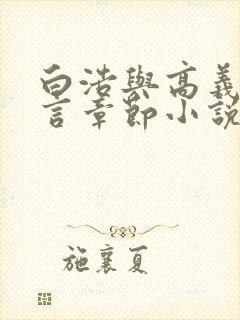 白浩與高義
言章節小說
施襄夏